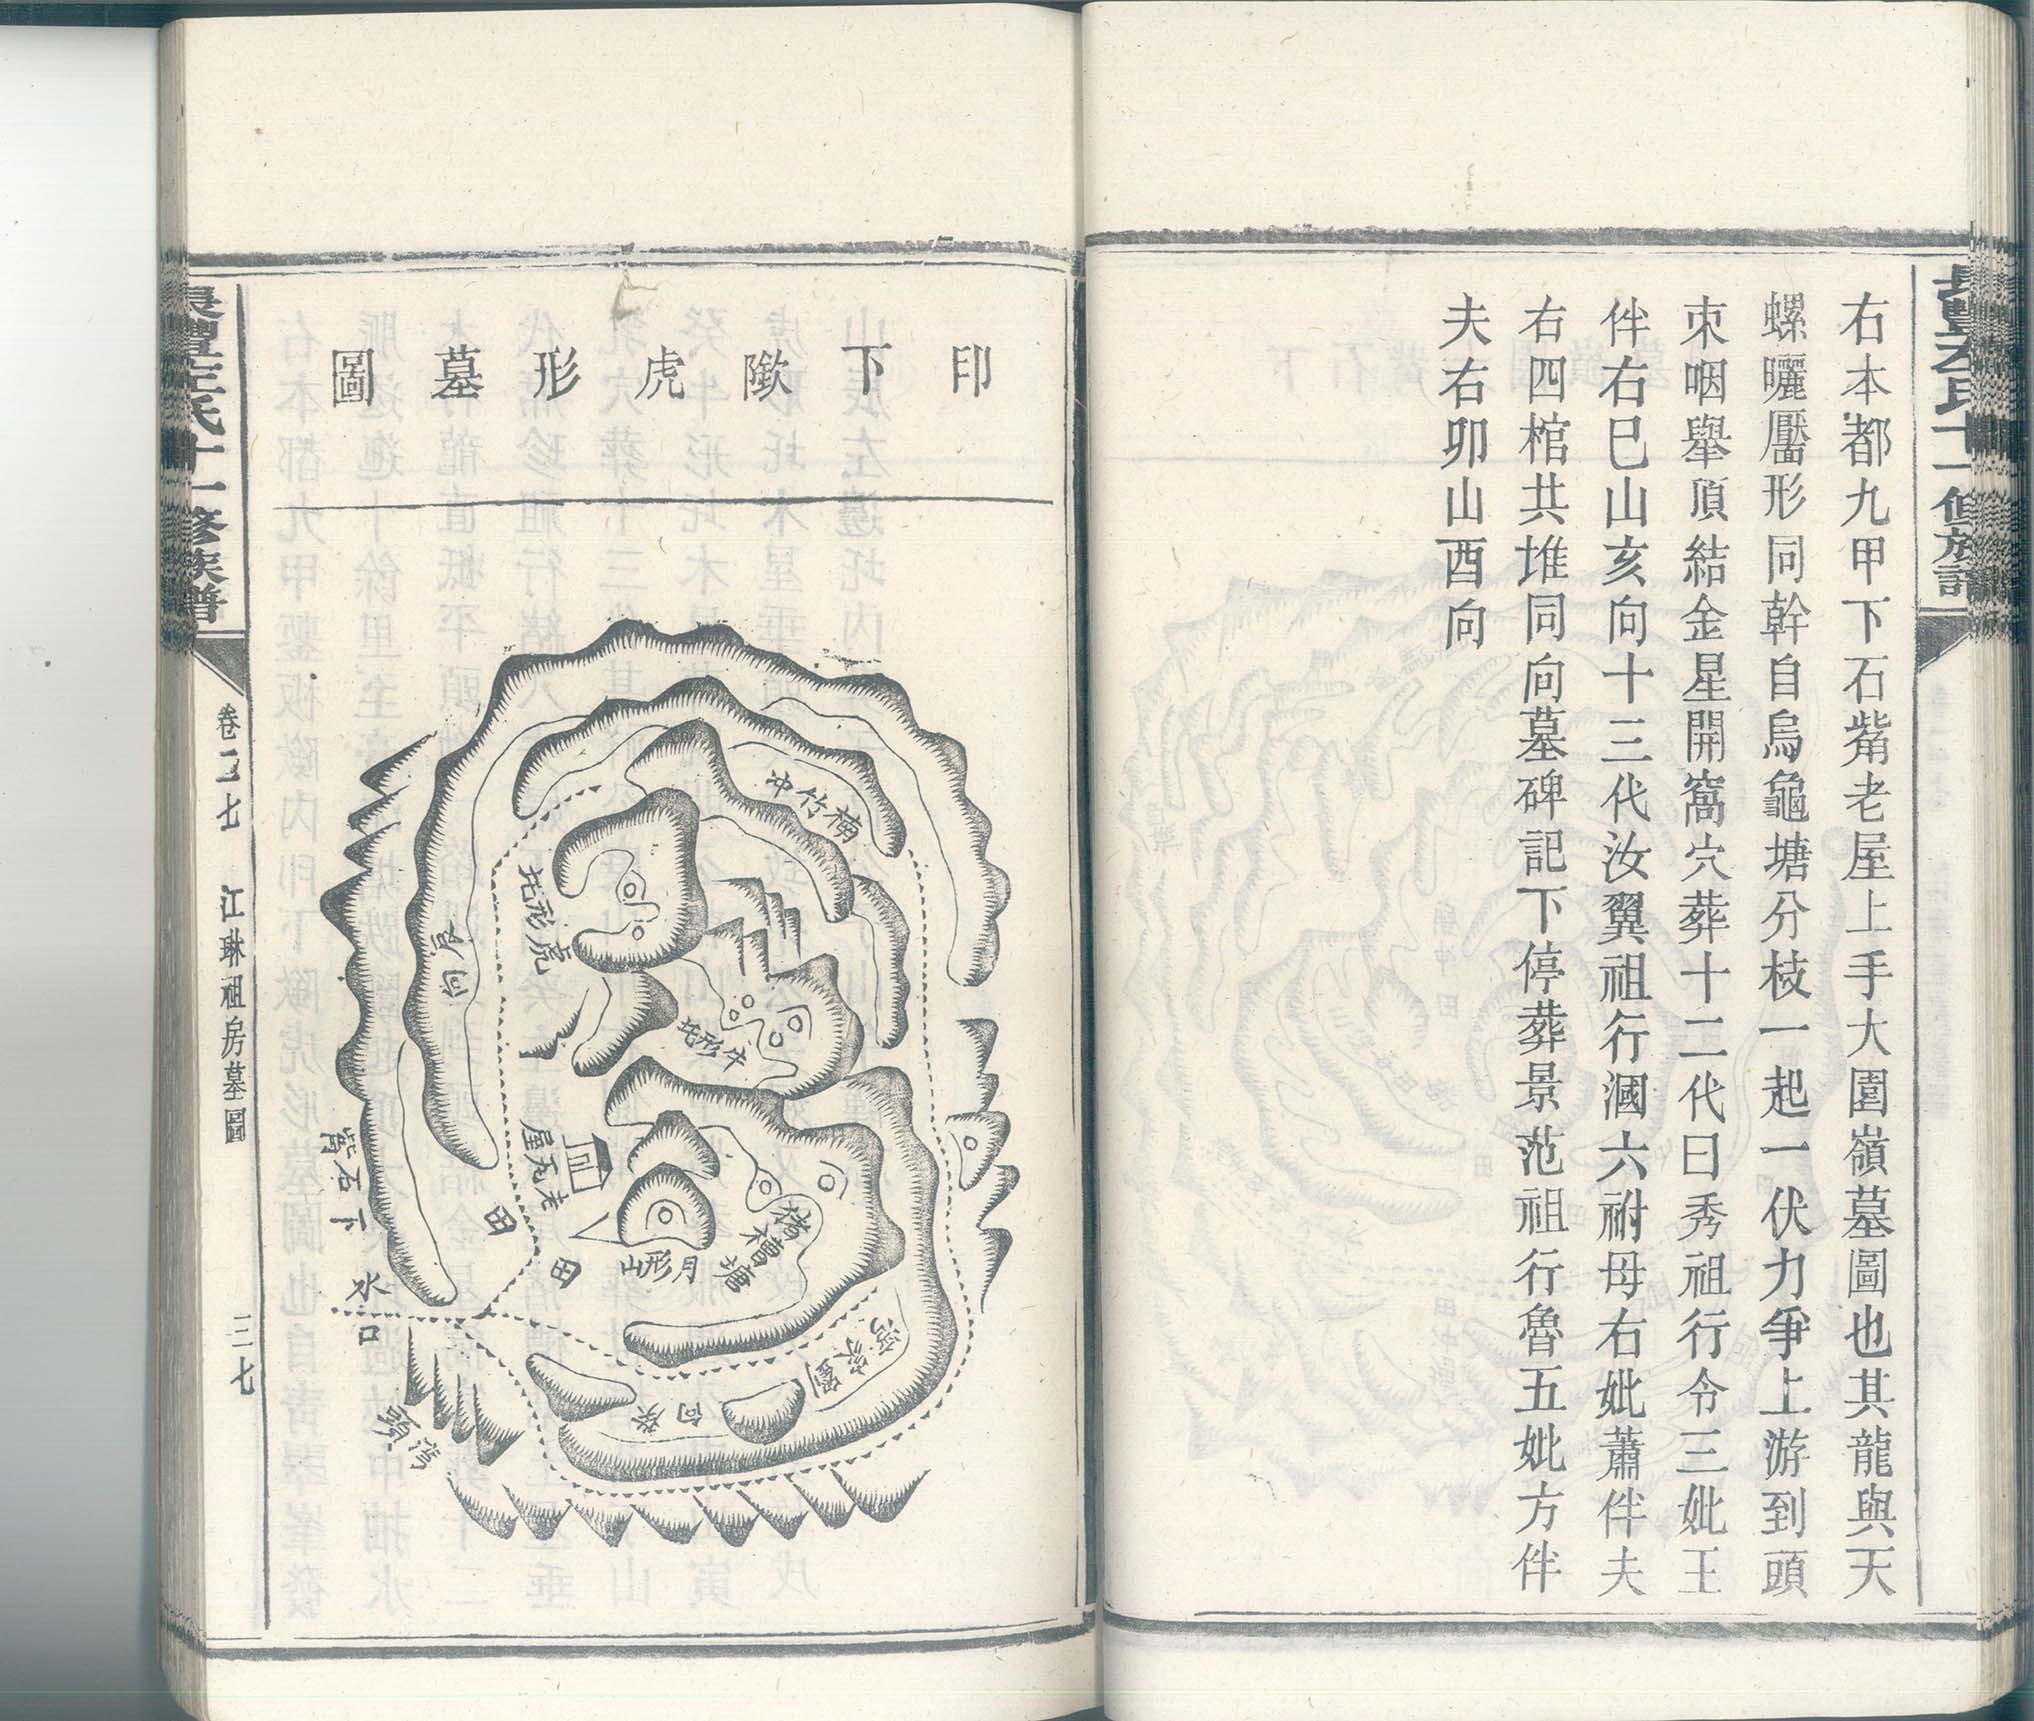 右本都九甲下石觜老屋上手大園嶺墓圖也其龍與天
螺曬靨形同幹自烏龜塘分枝一起一伏力爭上游到頭
朿咽舉頂結金星開窩穴葬十二代曰秀祖行令三妣王
伴右巳山亥向十三代汝翼祖行漍六祔母右妣蕭伴夫
右四棺共堆同向墓碑記下停葬景范祖行魯五妣方伴
夫右卯山酉向
印下歐虎形墓圖
楠竹冲
虎形坨
牛形坨
艮向
老瓦屋
田
田
月形山
楮槽塘
劉家湾
癸向
下石觜
水口
湾頭
氏十一修族譜
卷二七
江琳祖房墓圖
三七